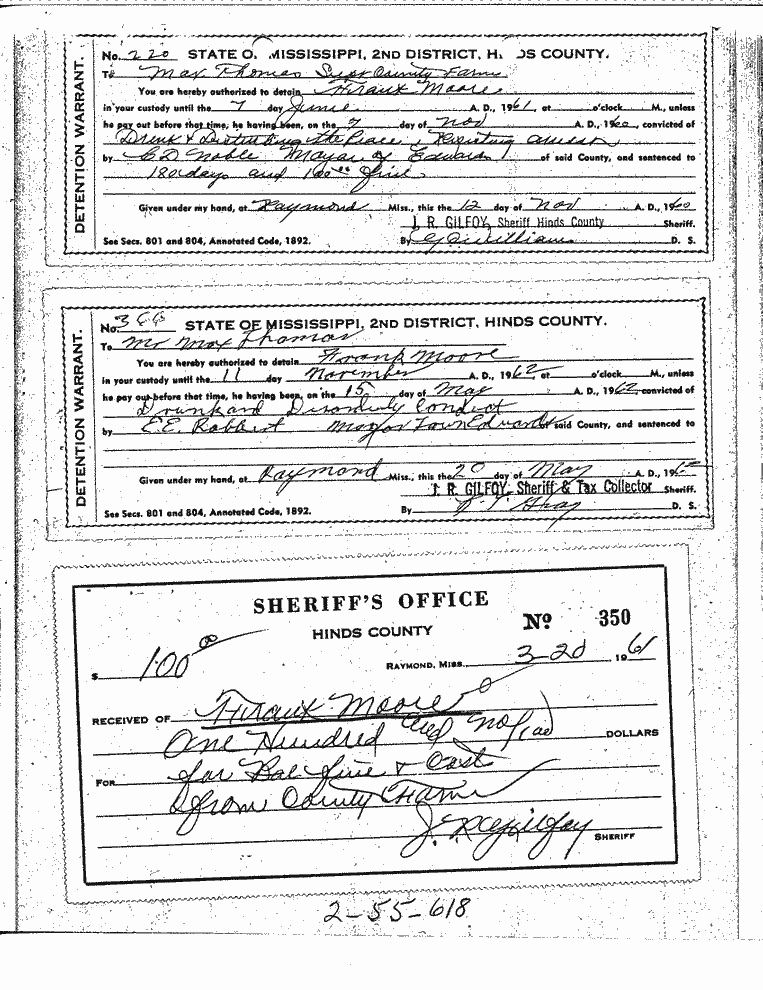 DETENTION WARRANT.
No. 220 STATE O. MISSISSIPPI, 2ND DISTRICT, H DS COUNTY.
To Max Thomas Supt County Farm
You are hereby authorized to detain Frank Moore
in your custody until the 7 day June A. D., 1961, at o'clock M., unless
he pay out before that time, he having been, on the 7 day of Nov A. D., 1960, convicted of
Drunk & Disturbing the Peace & Resisting arrest
by C D Noble Mayor of Edwards of said County, and sentenced to
180 days and 100 00 fine
Given under my hand, at Raymond Miss., this the 12 day of Nov A. D., 1960
J. R. GILFOY, Sheriff Hinds County Sheriff.
See Secs. 801 and 804, Annotated Code, 1892. By Williams D. S.
DETENTION WARRANT.
No. 3 STATE OF MISSISSIPPI, 2ND DISTRICT, HINDS COUNTY.
To Mr Max Thomas
You are hereby authorized to detain Frank Moore
in your custody until the 11 day November A. D., 1962, at o'clock M., unless
he pay out before that time, he having been, on the 15 day of May A. D., 1962, convicted of
Drunk and Disorderly Conduct
by E.E. Mayor Town Edwards of said County, and sentenced to
Given under my hand, at Raymond Miss., this the 20 day of May A. D., 196
J. R. GILFOY, Sheriff & Tax Collector Sheriff.
See Secs. 801 and 804, Annotated Code, 1892. By D. S.
SHERIFF'S OFFICE
HINDS COUNTY Nº 350
$ 100 00 RAYMOND, MISS., 3-20 1961
RECEIVED OF Frank Moore
One Hundred and no/00 DOLLARS
FOR for Bal fine & Cost
from County Farm
J. R. Gilfoy SHERIFF
2-55-618